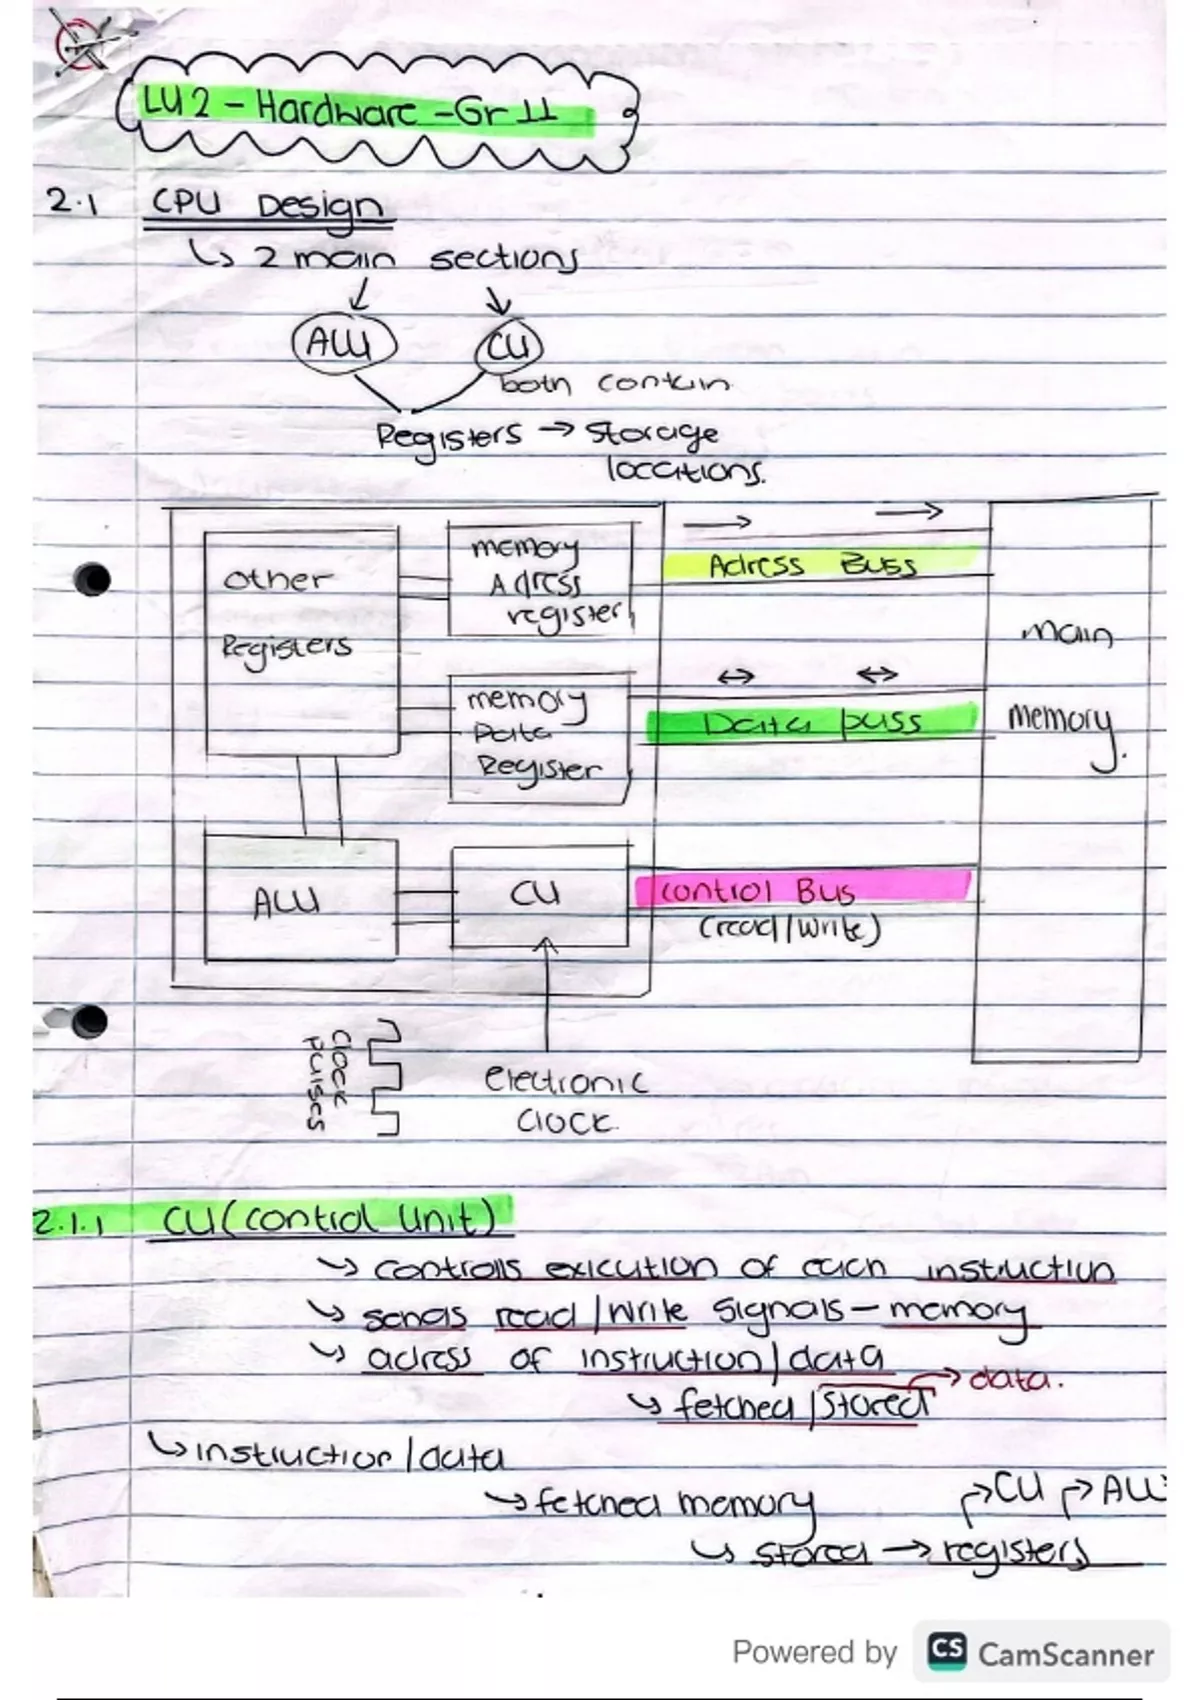 LU2 - Hardware - Gr 11
2.1 CPU Design
↳ 2 main sections
ALU CU
both contain
Registers → storage
locations.
other
Registers
memory
Adress
register
Adress Buss
main
memory.
memory
Data
Register
Data buss
ALU
CU
control Bus
(read/write)
Clock
pulses
electronic
clock.
2.1.1 CU (control unit)
↳ controlls exicution of each instruction
↳ sends read/write signals - memory
↳ adress of instruction/data
↳ fetched/stored → data.
↳ instruction/data
↳ fetched memory
→ CU → ALU
↳ stored → registers
Powered by CS CamScanner